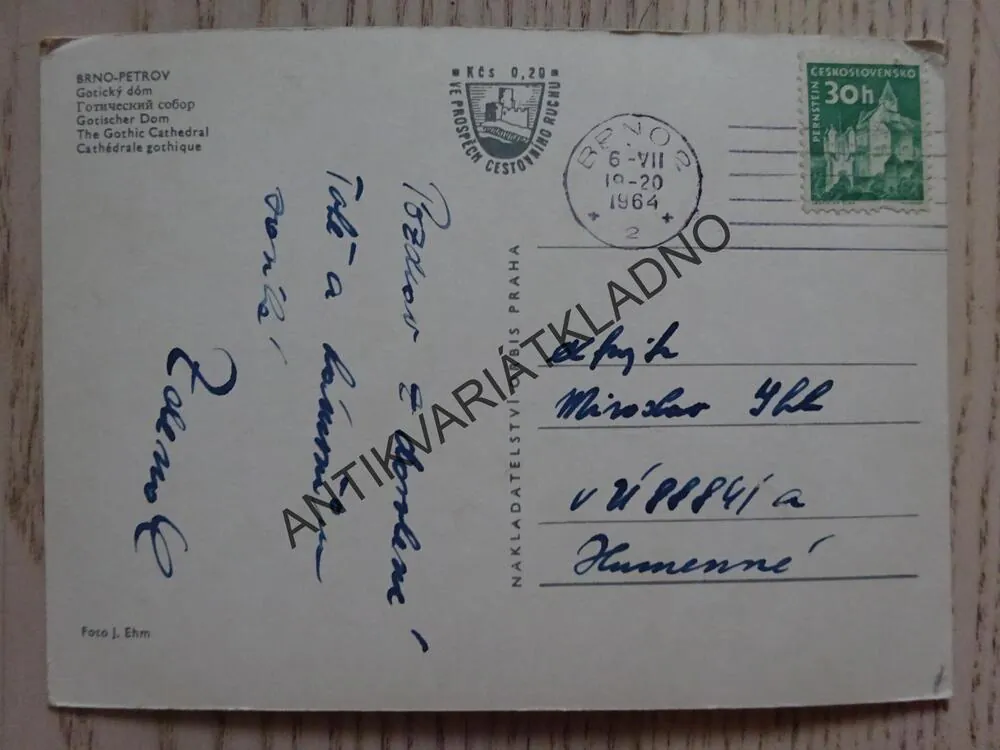 BRNO-PETROV
Gotický dóm
Готический собор
Gotischer Dom
The Gothic Cathedral
Cathédrale gothique
Kčs 0,20
VE PROSPĚCH CESTOVNÍHO RUCHU
BRNO 2
6-VII
19-20
1964
2
ČESKOSLOVENSKO
PERNŠTEJN
30h
Pozdrav z dovolené
Tobě a
Miroslav
v ÚÍ 8884/a
Humenné
NAKLADATELSTVÍ ORBIS PRAHA
Foto J. Ehm
ANTIKVARIÁTKLADNO